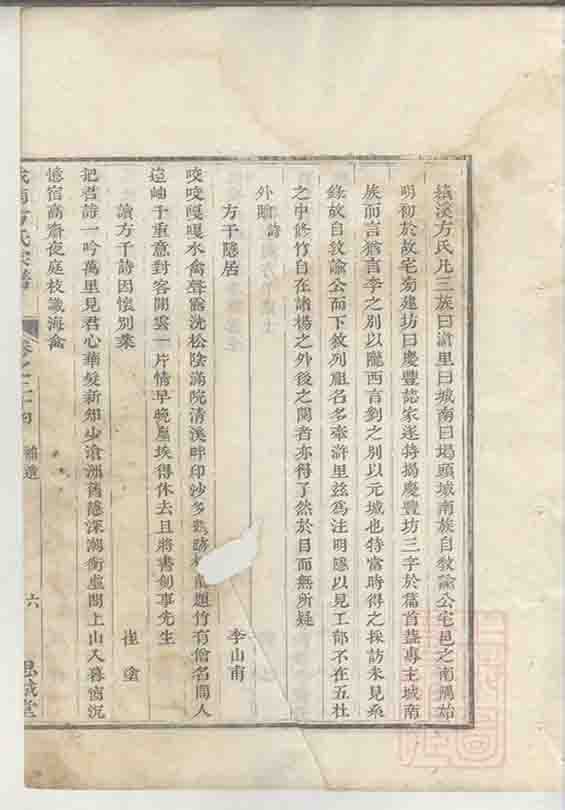 績溪方氏凡三族曰滸里曰城南曰塌頭城南族自敎諭公宅邑之南隅始
明初於故宅旁建坊曰慶豐誌家遂特揭慶豐坊三字於篇首葢專主城南
族而言猶言李之別以隴西言劉之別以元城也特當時得之採訪未見系
錄故自敎諭公而下敘列祖名多牽滸里玆爲注明庶以見工部不在五杜
之中修竹自在諸楊之外後之閱者亦得了然於目而無所疑
外贈詩
方干隱居 李山甫
咬咬嘎嘎水禽聲露洗松陰滿院淸溪畔印沙多鶴跡 題竹有僧名閒人
遠岫千重意對客閒雲一片情早晚塵埃得休去且將書劍事先生
讀方干詩因懷別業 崔塗
把君詩一吟萬里見君心華髮新知少滄洲舊隱深潮衝虛閣上山入暮窗沉
憶宿高齋夜庭枝識海禽
城南方氏宗譜 卷之二十四 補遺 六 思誠堂